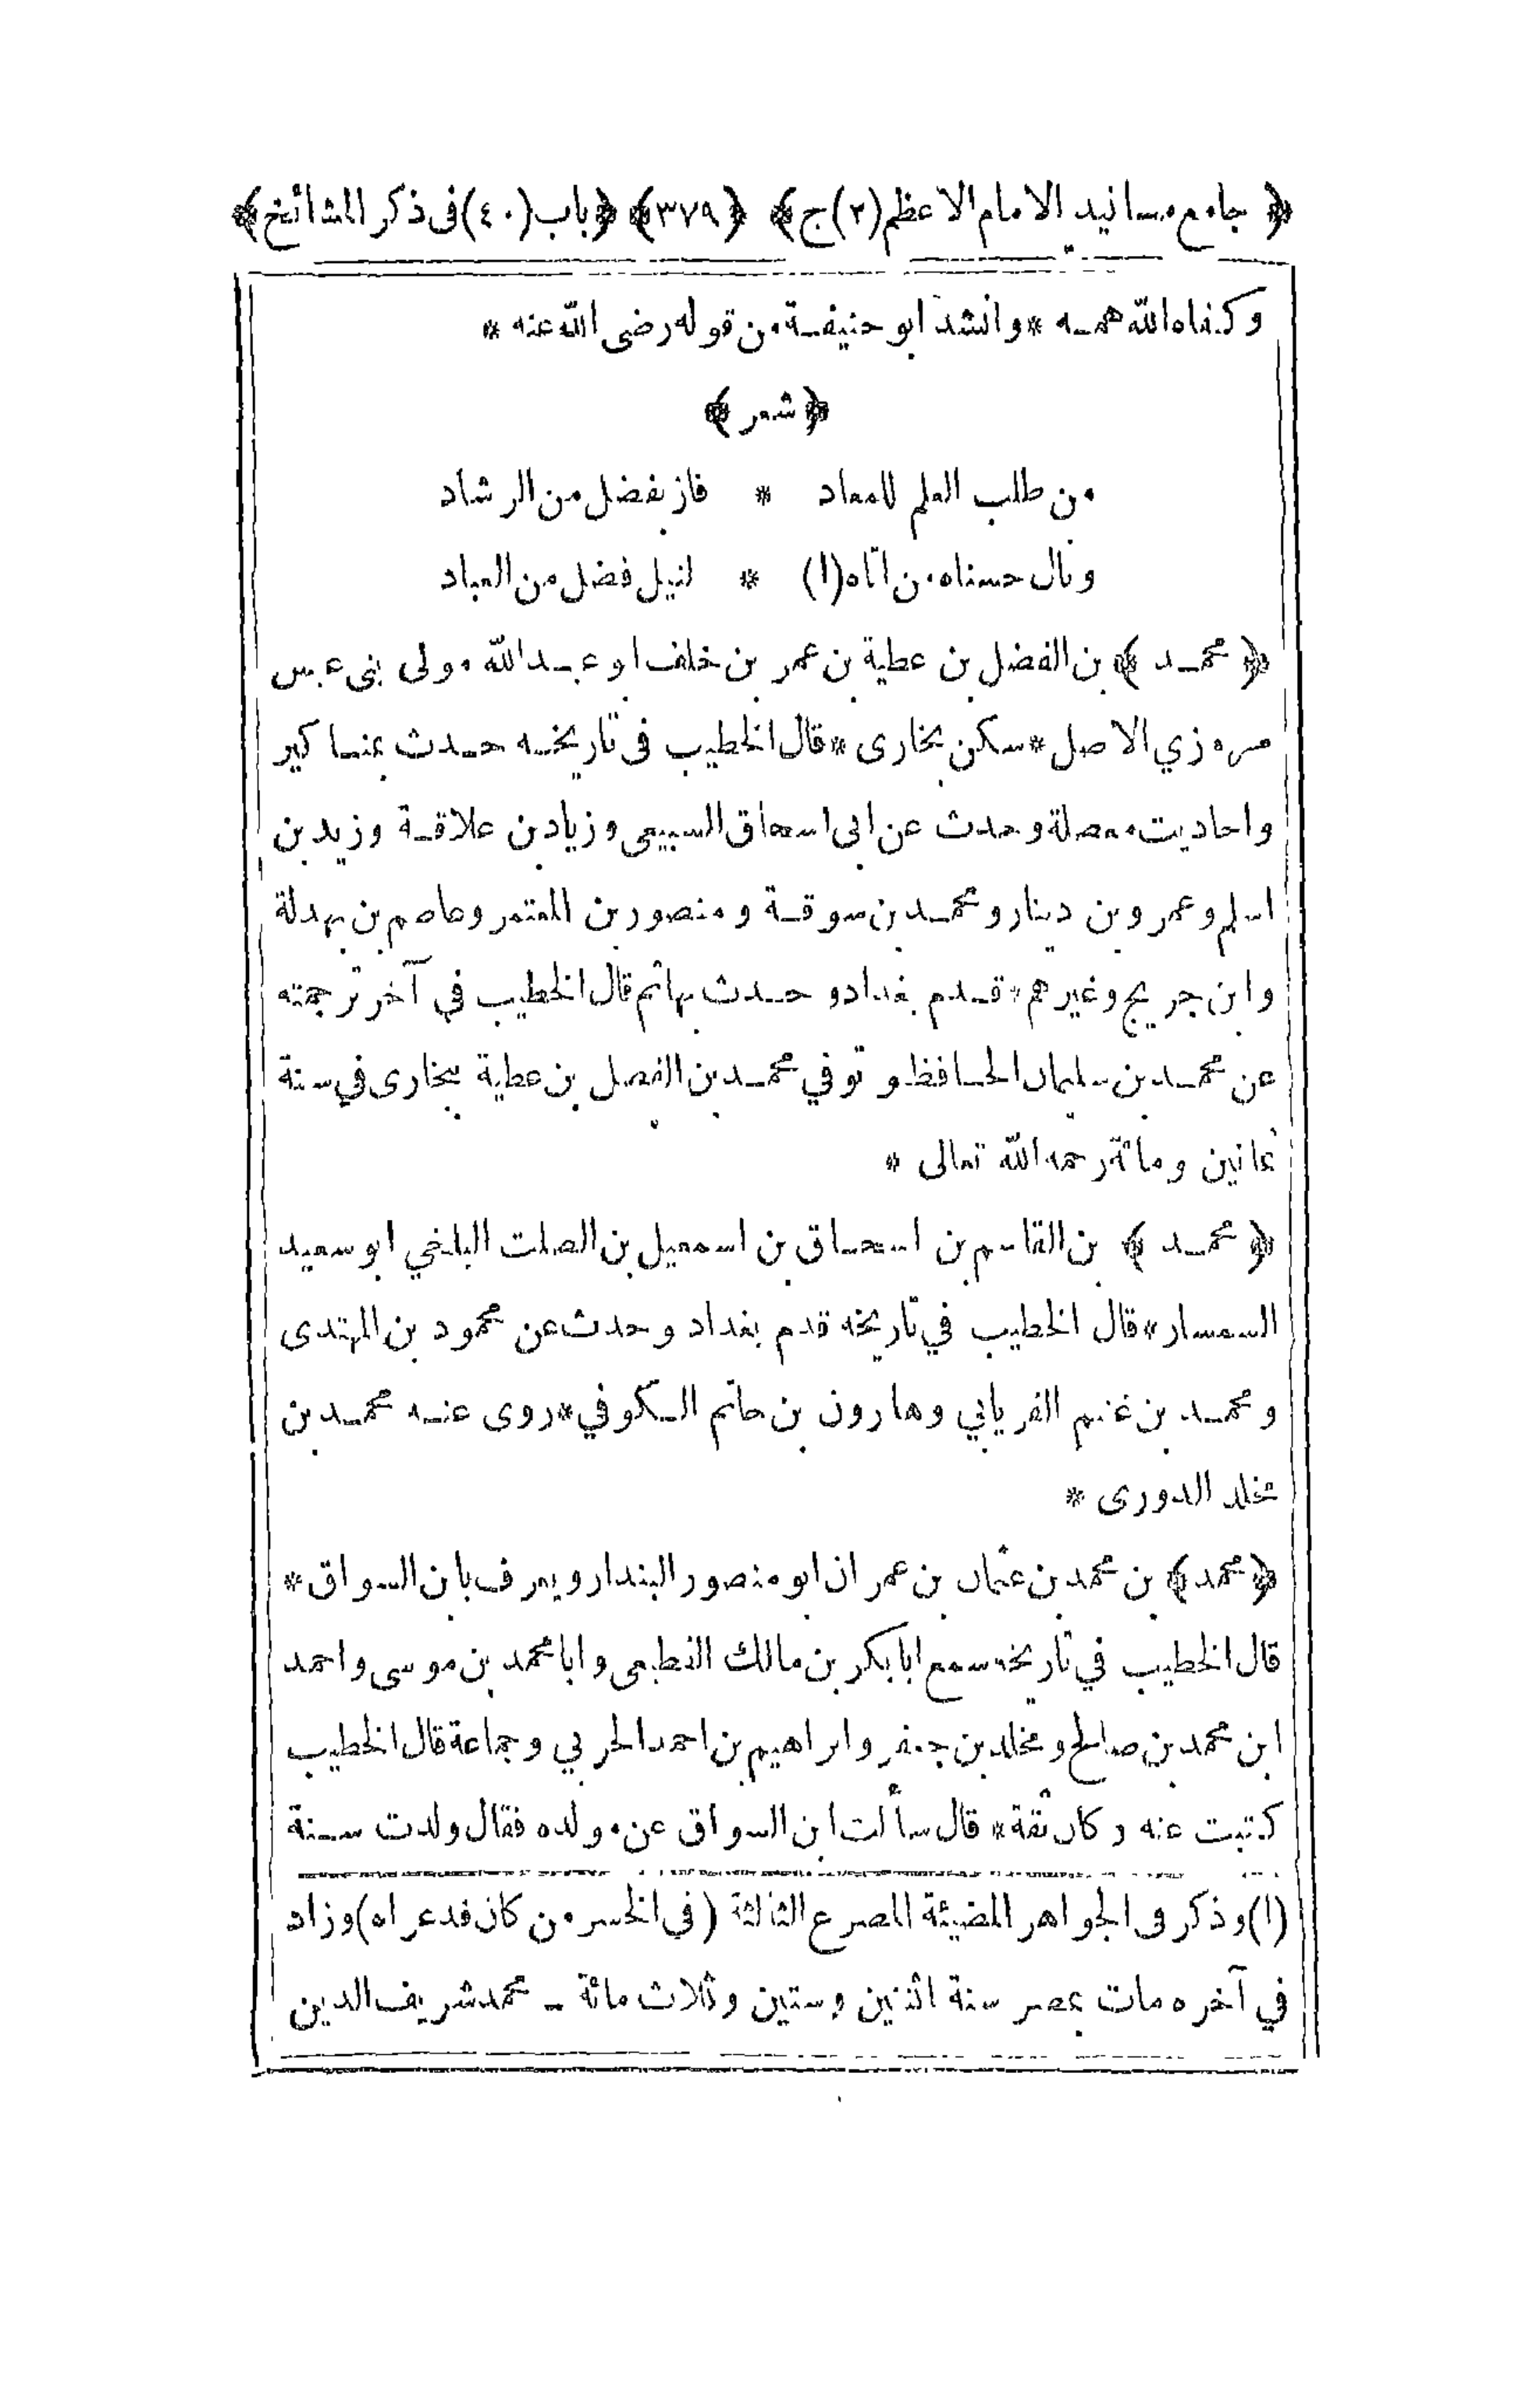 ﴿ جامع مسانيد الامام الاعظم (٢) ج ﴾ ﴿ ٣٧٩ ﴾ ﴿ باب (٤٠) فى ذكر المشائخ ﴾
وكفاه الله همه * وانشد ابو حنيفة من قوله رضى الله عنه *
﴿ شعر ﴾
من طلب العلم للمعاد * فاز بفضل من الرشاد
ونال حسناه من اتاه (١) * لنيل فضل من العباد
﴿ محمد ﴾ بن الفضل بن عطية بن عمر بن خلف ابو عبد الله مولى بنى عبس
مروزي الاصل * سكن بخارى * قال الخطيب فى تاريخه حدث بمناكير
واحاديث معضلة وحدث عن ابى اسحاق السبيعى وزياد بن علاقة وزيد بن
اسلم وعمرو بن دينار ومحمد بن سوقة ومنصور بن المعتمر وعاصم بن بهدلة
وابن جريج وغيرهم * قدم بغداد وحدث بها ثم قال الخطيب في آخر ترجمته
عن محمد بن سليمان الحافظ وتوفي محمد بن الفضل بن عطية ببخارى في سنة
ثمانين ومائة رحمه الله تعالى *
﴿ محمد ﴾ بن القاسم بن اسحاق بن اسمعيل بن الصلت البلخي ابو سعيد
السمسار * قال الخطيب في تاريخه قدم بغداد وحدث عن محمود بن المهتدى
ومحمد بن غنيم الفريابي وهارون بن حاتم الكوفي * روى عنه محمد بن
مخلد الدورى *
﴿ محمد ﴾ بن محمد بن عثمان بن عمران ابو منصور البندار ويعرف بابن السواق *
قال الخطيب في تاريخه سمع ابا بكر بن مالك القطيعى وابا محمد بن موسى واحمد
ابن محمد بن صالح ومخلد بن جعفر وابراهيم بن احمد الحربي وجماعة قال الخطيب
كتبت عنه وكان ثقة * قال سألت ابن السواق عن مولده فقال ولدت سنة
(١) وذكر فى الجواهر المضيئة المصرع الثالثة (فى الخسر من كان قد عراه) وزاد
في آخره مات بمصر سنة اثنين وستين وثلاث مائة ـ محمد شريف الدين